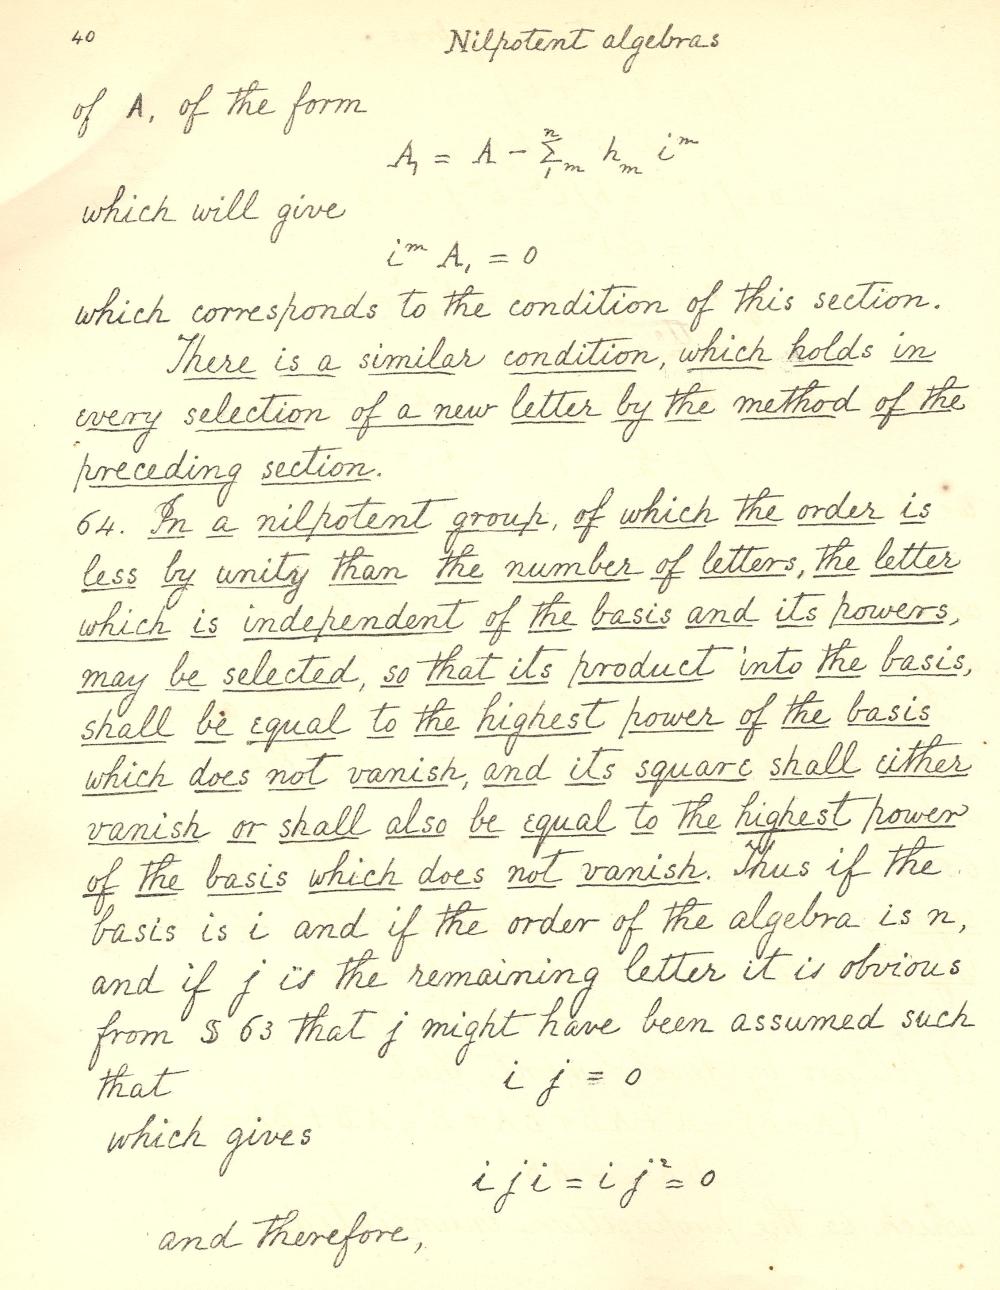 40 Nilpotent algebras
of A, of the form
A₁ = A - Σ₁ⁿₘ hₘ iᵐ
which will give
iᵐ A₁ = 0
which corresponds to the condition of this section.
There is a similar condition, which holds in
every selection of a new letter by the method of the
preceding section.
64. In a nilpotent group, of which the order is
less by unity than the number of letters, the letter
which is independent of the basis and its powers,
may be selected, so that its product into the basis,
shall be equal to the highest power of the basis
which does not vanish, and its square shall either
vanish or shall also be equal to the highest power
of the basis which does not vanish. Thus if the
basis is i and if the order of the algebra is n,
and if j is the remaining letter it is obvious
from § 63 that j might have been assumed such
that i j = 0
which gives
i j i = i j² = 0
and therefore,